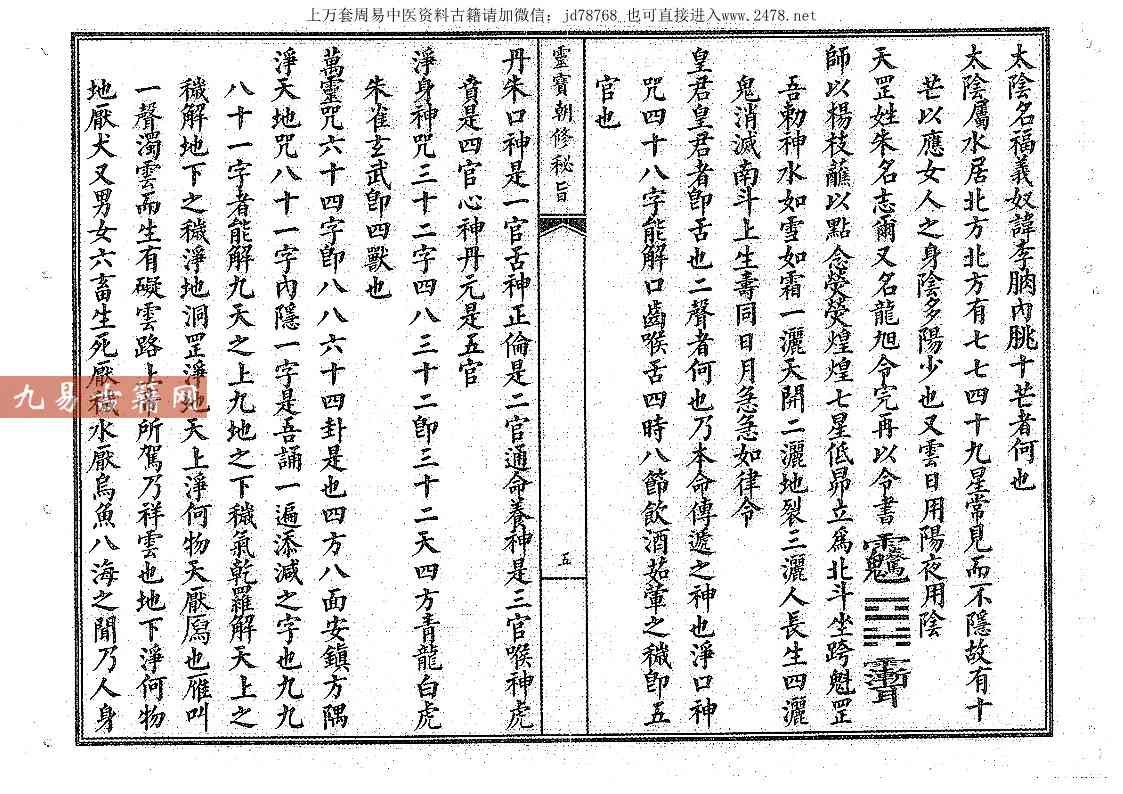 上万套周易中医资料古籍请加微信：jd78768 也可直接进入www.2478.net
太陰名福義奴諱李朒內朓十芒者何也
太陰屬水居北方北方有七七四十九星常見而不隱故有十
芒以應女人之身陰多陽少也又雲日用陽夜用陰
天罡姓朱名志爾又名龍旭令完再以令書
師以楊枝蘸以點念熒熒煌煌七星低昻立爲北斗坐跨魁罡
吾勅神水如雪如霜一灑天開二灑地裂三灑人長生四灑
鬼消滅南斗上生壽同日月急急如律令
皇君皇君者卽舌也二聲者何也乃本命傳遞之神也淨口神
咒四十八字能解口齒喉舌四時八節飲酒茹葷之穢卽五
官也
靈寶朝修秘旨
五
丹朱口神是一官舌神正倫是二官通命養神是三官喉神虎
賁是四官心神丹元是五官
淨身神咒三十二字四八三十二卽三十二天四方青龍白虎
朱雀玄武卽四獸也
萬靈咒六十四字卽八八六十四卦是也四方八面安鎮方隅
淨天地咒八十一字內隱一字是吾誦一遍添減之字也九九
八十一字者能解九天之上九地之下穢氣乾羅解天上之
穢解地下之穢淨地洞罡淨地天上淨何物天厭鴈也雁叫
一聲濁雲而生有礙雲路上聖所駕乃祥雲也地下淨何物
地厭犬又男女六畜生死厭穢水厭烏魚八海之聞乃人身
九易古籍网